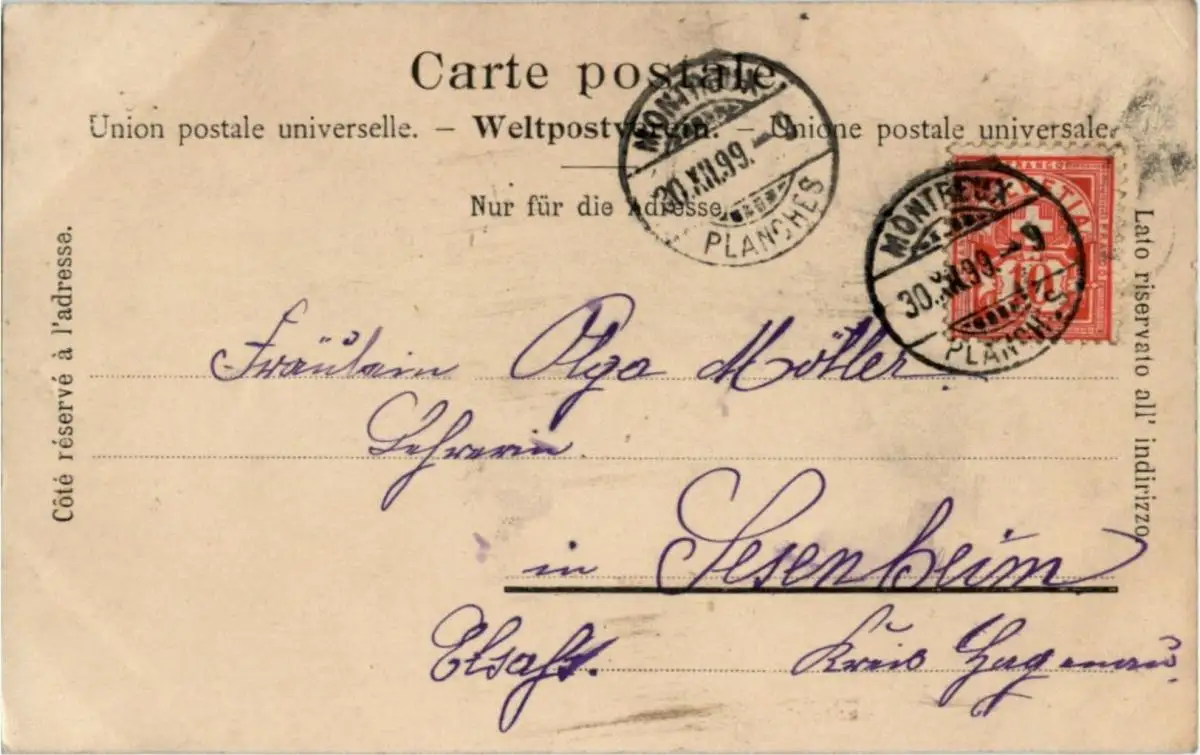 Carte postale.
Union postale universelle. – Weltpostverein. – Unione postale universale.
Nur für die Adresse.
Côté réservé à l'adresse.
Lato riservato all' indirizzo.
MONTREUX
30.XII.99.–9
PLANCHES
FRANCO
HELVETIA
10
MONTREUX
30.XII.99.–9
PLANCHES
Fräulein Olga
Lehrerin
in Sesenheim
Elsaß. Kreis Hagenau.